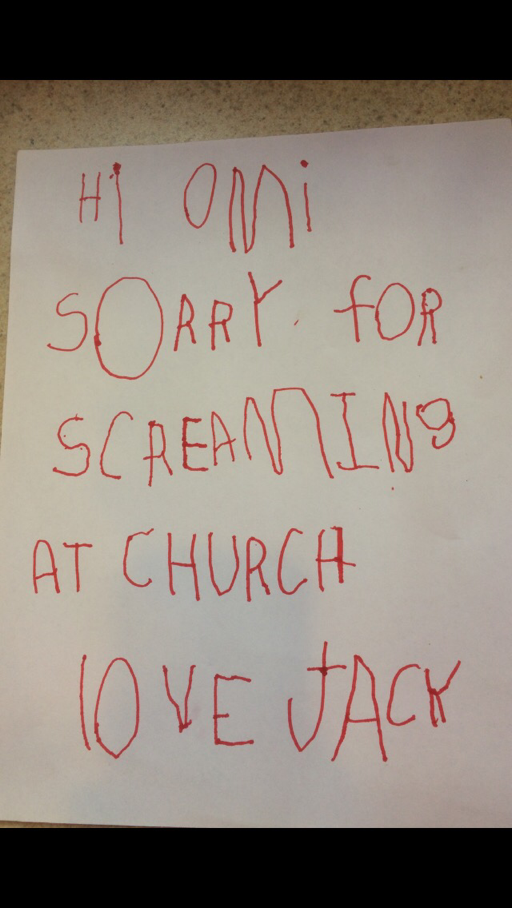 Hi OMi
SORRY. fOR
SCREAMING
AT CHURCH
lOVE JACK